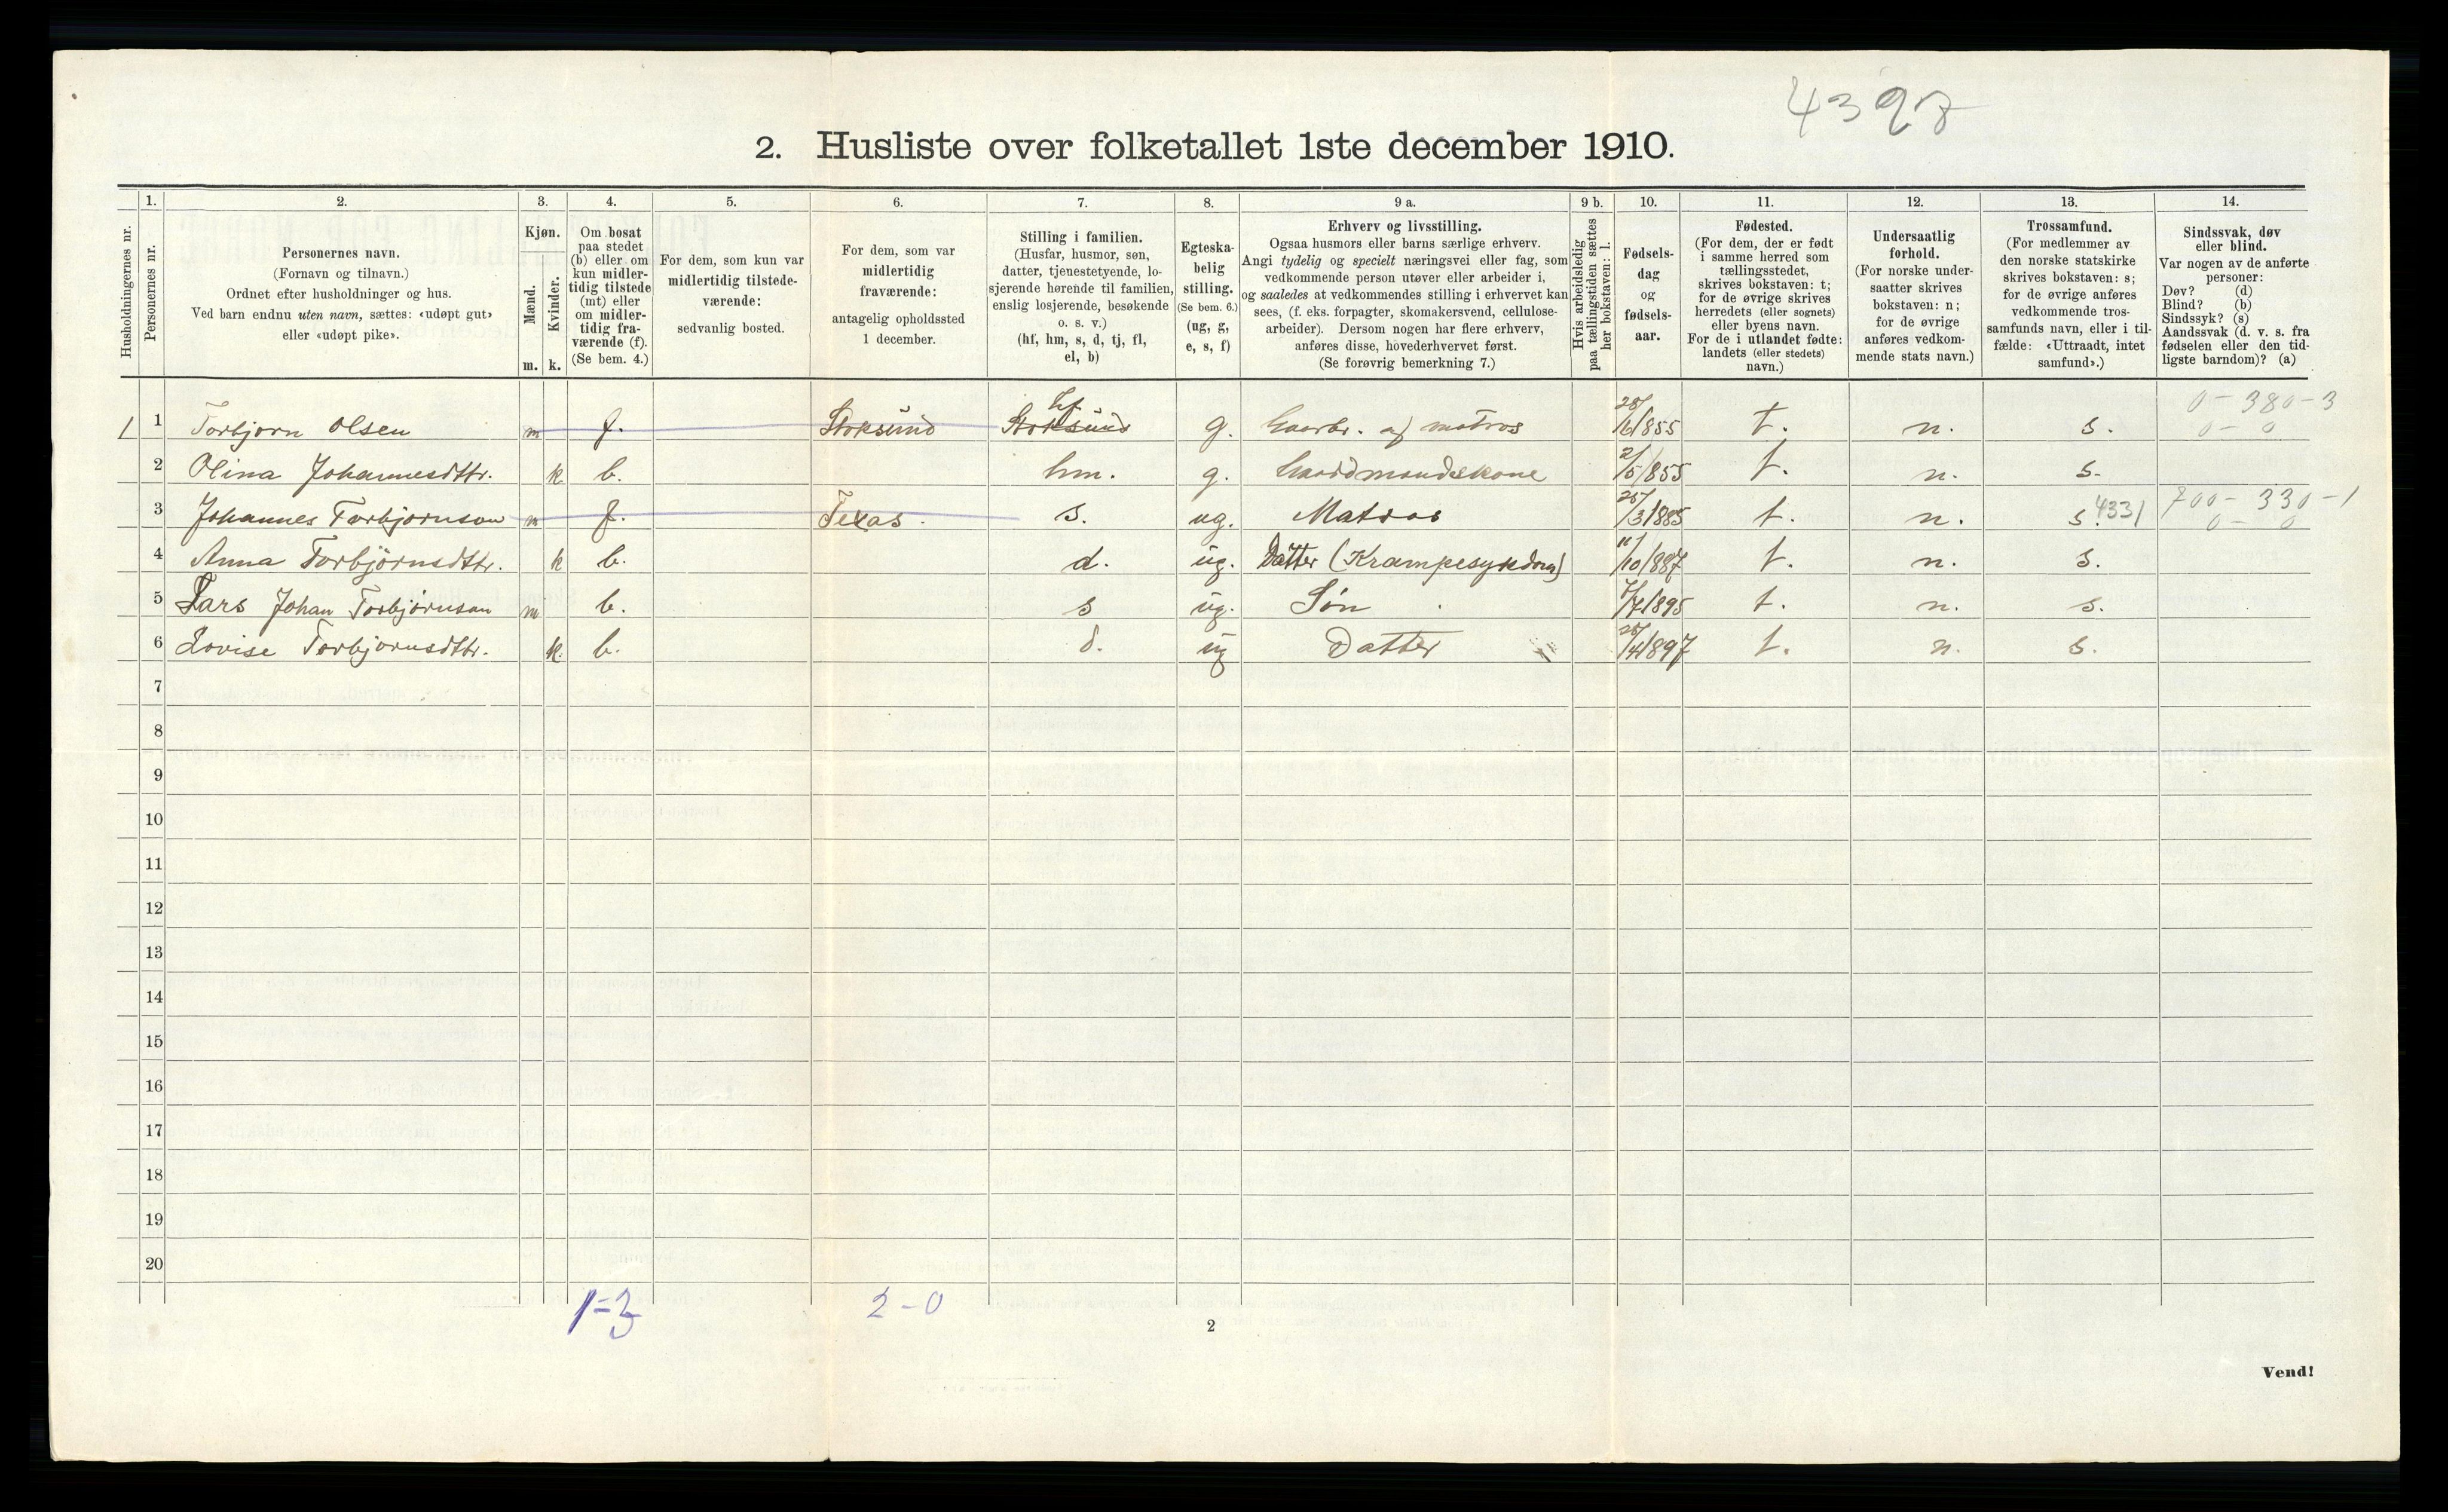 4397
2. Husliste over folketallet 1ste december 1910.
Husholdningernes nr.
1.
Personernes nr.
2.
Personernes navn.
(Fornavn og tilnavn.)
Ordnet efter husholdninger og hus.
Ved barn endnu uten navn, sættes: «udøpt gut»
eller «udøpt pike».
3.
Kjøn.
Mænd.
Kvinder.
m. k.
4.
Om bosat
paa stedet
(b) eller om
kun midler-
tidig tilstede
(mt) eller
om midler-
tidig fra-
værende (f).
(Se bem. 4.)
5.
For dem, som kun var
midlertidig tilstede-
værende:
sedvanlig bosted.
6.
For dem, som var
midlertidig
fraværende:
antagelig opholdssted
1 december.
7.
Stilling i familien.
(Husfar, husmor, søn,
datter, tjenestetyende, lo-
sjerende hørende til familien,
enslig losjerende, besøkende
o. s. v.)
(hf, hm, s, d, tj, fl,
el, b)
8.
Egteska-
belig
stilling.
(Se bem. 6.)
(ug, g,
e, s, f)
9 a.
Erhverv og livsstilling.
Ogsaa husmors eller barns særlige erhverv.
Angi tydelig og specielt næringsvei eller fag, som
vedkommende person utøver eller arbeider i,
og saaledes at vedkommendes stilling i erhvervet kan
sees, (f. eks. forpagter, skomakersvend, cellulose-
arbeider). Dersom nogen har flere erhverv,
anføres disse, hovederhvervet først.
(Se forøvrig bemerkning 7.)
9 b.
Hvis arbeidsledig
paa tællingstiden sættes
her bokstaven: l.
10.
Fødsels-
dag
og
fødsels-
aar.
11.
Fødested.
(For dem, der er født
i samme herred som
tællingsstedet,
skrives bokstaven: t;
for de øvrige skrives
herredets (eller sognets)
eller byens navn.
For de i utlandet fødte:
landets (eller stedets)
navn.)
12.
Undersaatlig
forhold.
(For norske under-
saatter skrives
bokstaven: n;
for de øvrige
anføres vedkom-
mende stats navn.)
13.
Trossamfund.
(For medlemmer av
den norske statskirke
skrives bokstaven: s;
for de øvrige anføres
vedkommende tros-
samfunds navn, eller i til-
fælde: «Uttraadt, intet
samfund».)
14.
Sindssvak, døv
eller blind.
Var nogen av de anførte
personer:
Døv? (d)
Blind? (b)
Sindssyk? (s)
Aandssvak (d. v. s. fra
fødselen eller den tid-
ligste barndom)? (a)
0-380-3
1 1 Torbjørn Olsen m f. Stoksund Stoksund hf g. Gaarbr. og matros 28/6/855 t. n. s. 0-0
2 Olina Johannesdttr. k b. hm. g. Gaardmandskone 2/5/855 t. n. s.
3 Johannes Torbjørnson m f. Texas. s. ug. Matros 25/3/885 t. n. s. 4331 700-330-1
0-0
4 Anna Torbjørnsdttr. k b. d. ug. Datter (Krampesykdom) 11/10/887 t. n. s.
5 Lars Johan Torbjørnson m b. s ug. Søn 7/7/895 t. n. s.
6 Lovise Torbjørnsdttr. k. b. d. ug Datter 25/4/897 t. n. s.
7
8
9
10
11
12
13
14
15
16
17
18
19
20
1-3 2-0
2
Vend!